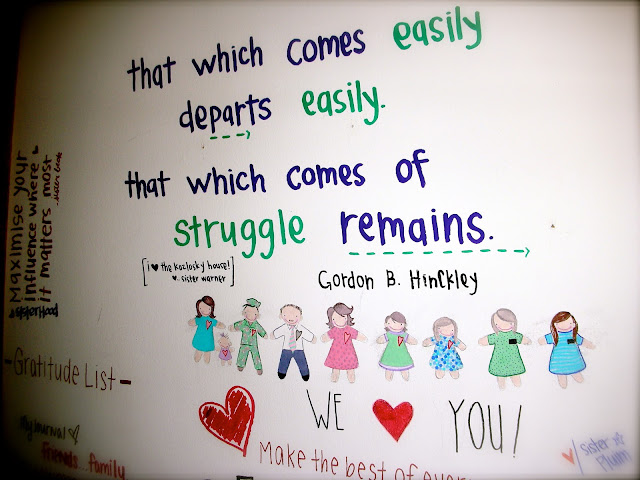 that which comes easily
departs easily.
that which comes of
struggle remains.
[i ♥ the kozlosky house!
♥.. sister warner]
Gordon B. Hinckley
Maximise your
influence where
it matters most
sisterhood
-Gratitude List-
my Journal ♡
friends... family
WE ♥ YOU!
Make the best of
sister
Plum